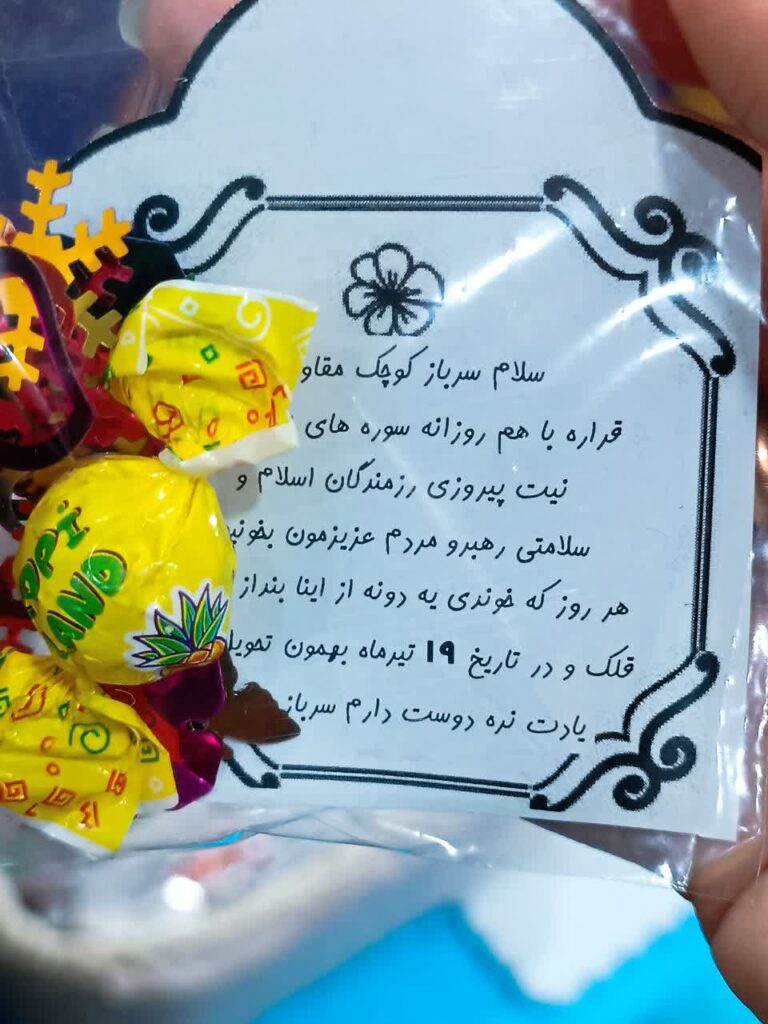 سلام سرباز کوچک
قراره با هم روزانه سوره های
نیت پیروزی رزمندگان اسلام و
سلامتی رهبرو مردم عزیزمون
هر روز که خوندی یه دونه از اینا
قلک و در تاریخ ۱۹ تیرماه بهمون
یادت نره دوست دارم سرباز